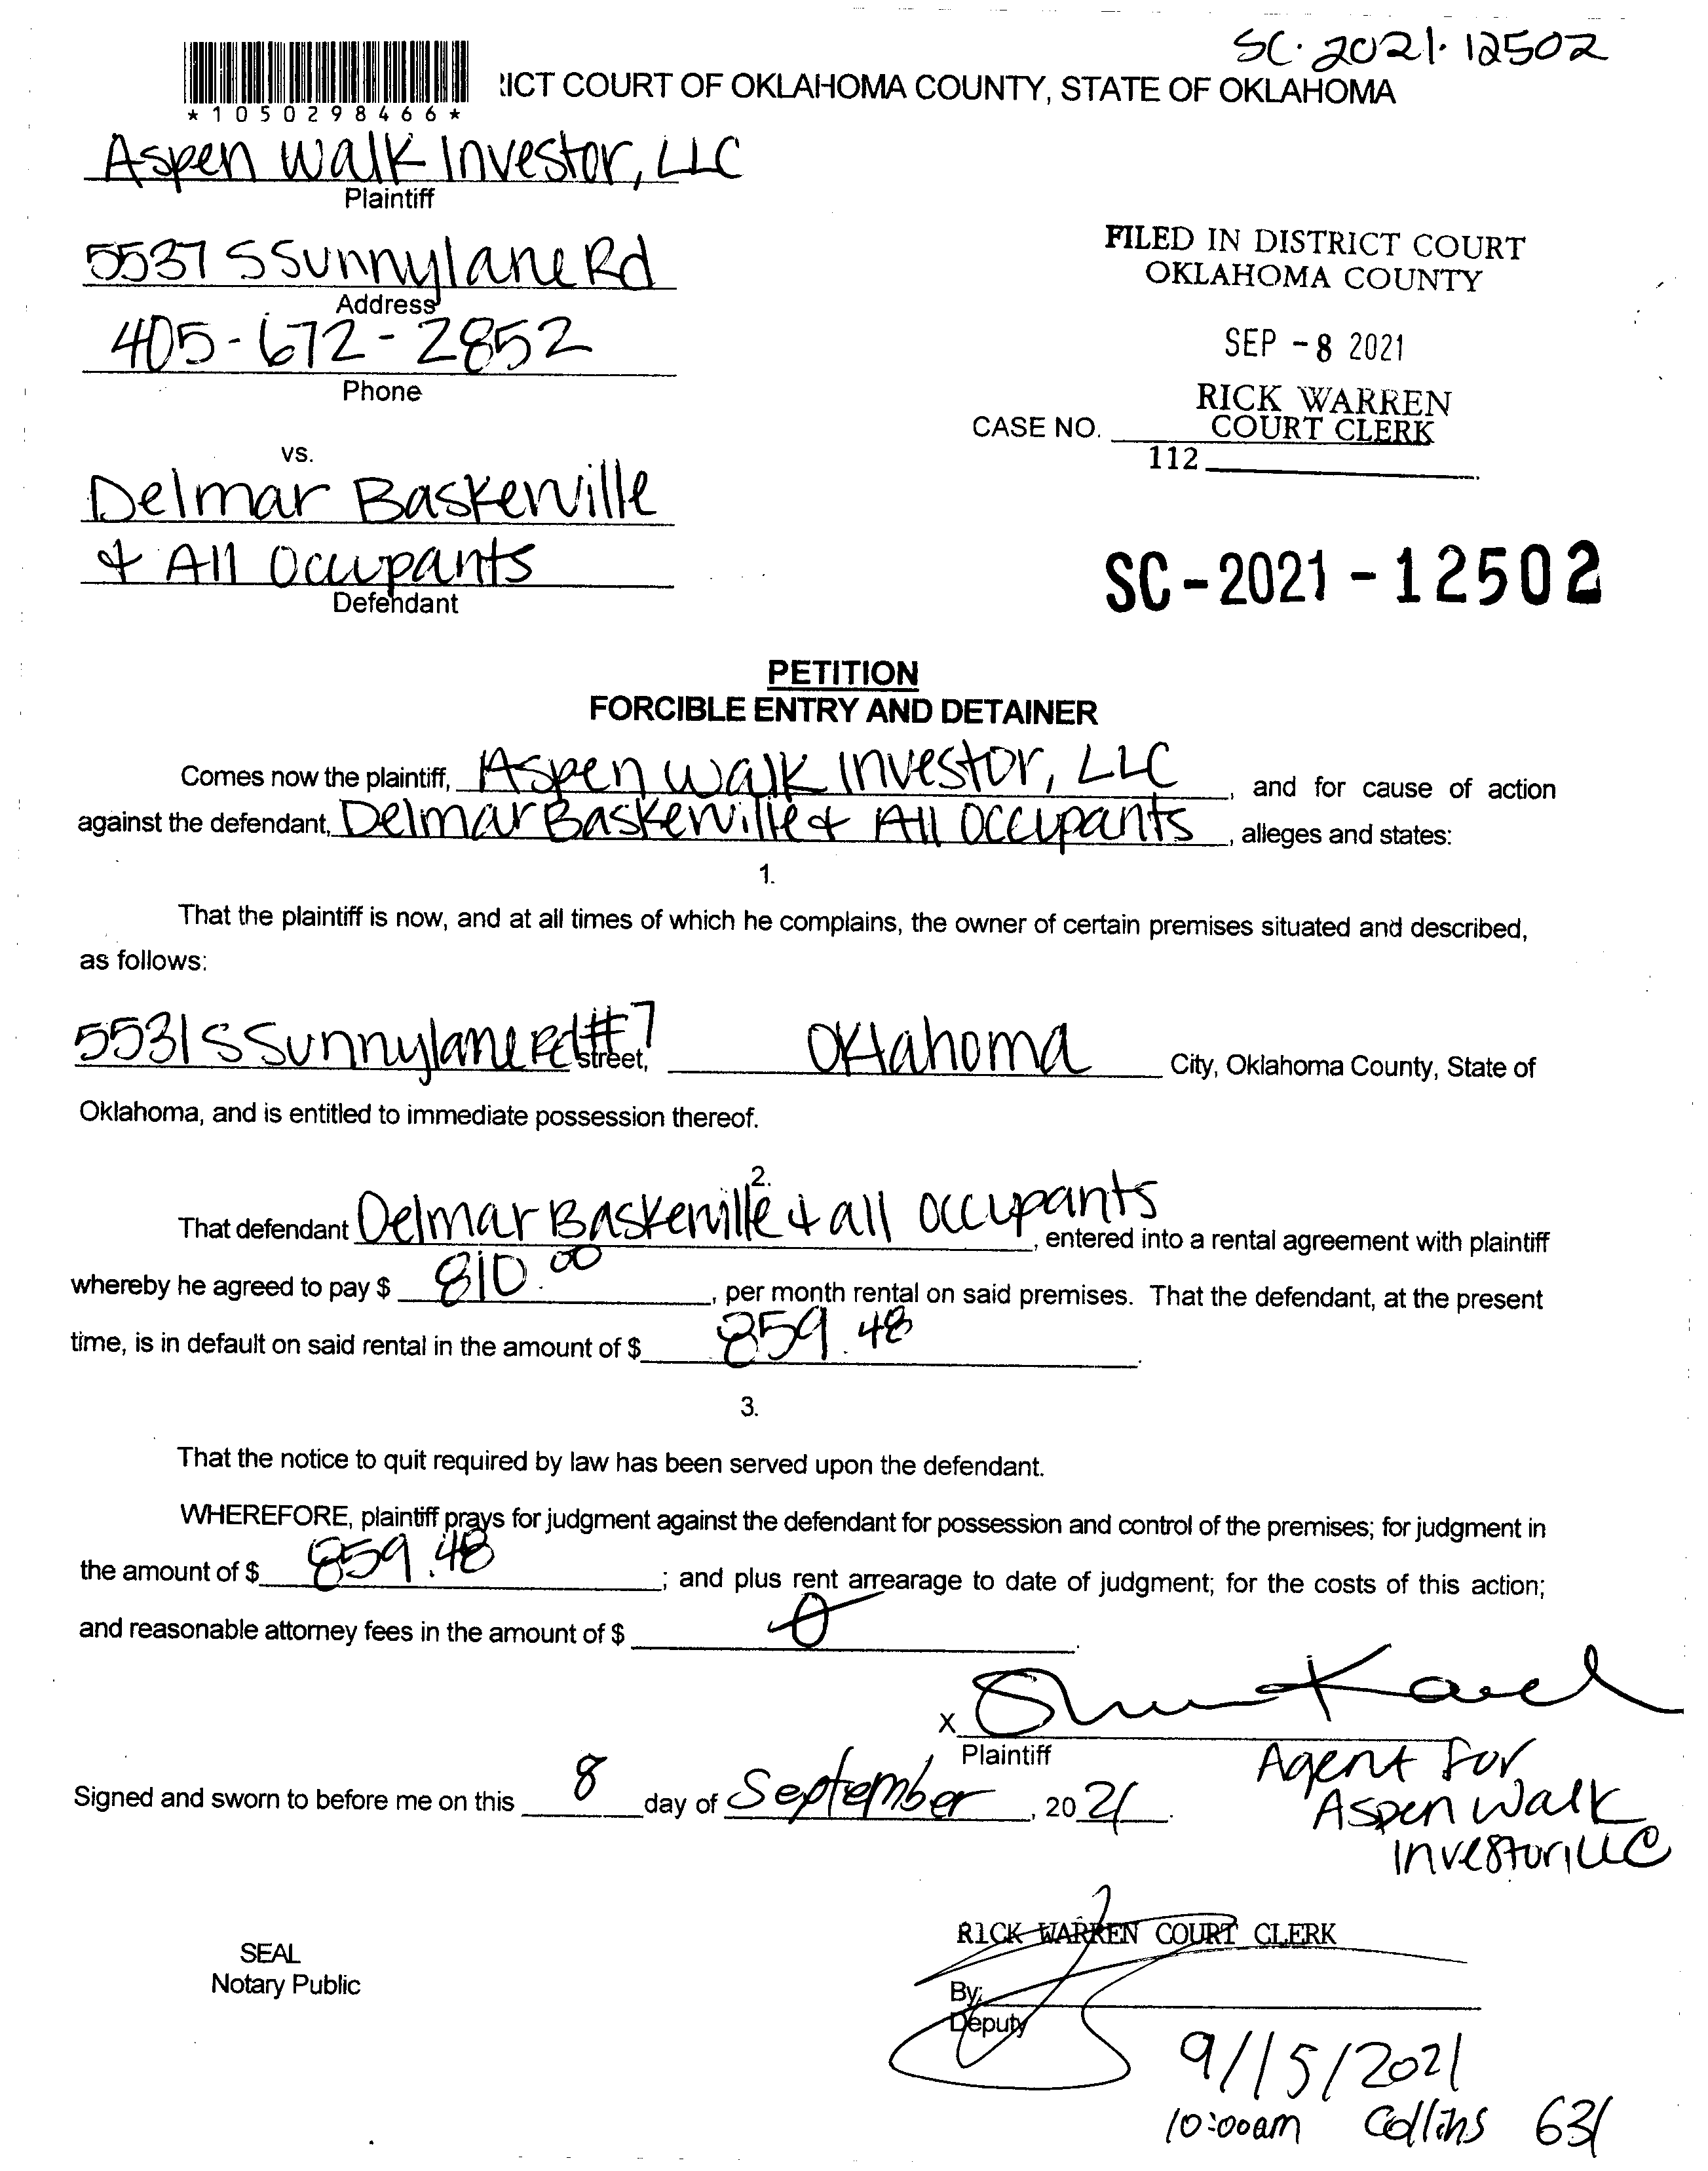 SC-2021-12502
ICT COURT OF OKLAHOMA COUNTY, STATE OF OKLAHOMA
*1050298466*
Aspen Walk Investor, LLC
Plaintiff
5537 S Sunnylane Rd
Address
405-672-2852
Phone
FILED IN DISTRICT COURT
OKLAHOMA COUNTY
SEP -8 2021
RICK WARREN
CASE NO. COURT CLERK
112
vs.
Delmar Baskerville
& All Occupants
Defendant
SC-2021-12502
PETITION
FORCIBLE ENTRY AND DETAINER
Comes now the plaintiff, Aspen Walk Investor, LLC, and for cause of action
against the defendant, Delmar Baskerville & All Occupants, alleges and states:
1.
That the plaintiff is now, and at all times of which he complains, the owner of certain premises situated and described,
as follows:
5531 S Sunnylane Rd #7 street, Oklahoma City, Oklahoma County, State of
Oklahoma, and is entitled to immediate possession thereof.
2.
That defendant Delmar Baskerville & all occupants, entered into a rental agreement with plaintiff
whereby he agreed to pay $ 810.00, per month rental on said premises. That the defendant, at the present
time, is in default on said rental in the amount of $ 859.48.
3.
That the notice to quit required by law has been served upon the defendant.
WHEREFORE, plaintiff prays for judgment against the defendant for possession and control of the premises; for judgment in
the amount of $ 859.48; and plus rent arrearage to date of judgment; for the costs of this action;
and reasonable attorney fees in the amount of $ 0.
X
Plaintiff
Agent for
Aspen Walk
Investor, LLC
Signed and sworn to before me on this 8 day of September, 2021.
RICK WARREN COURT CLERK
SEAL
Notary Public
By:
Deputy
9/15/2021
10:00am Collins 631